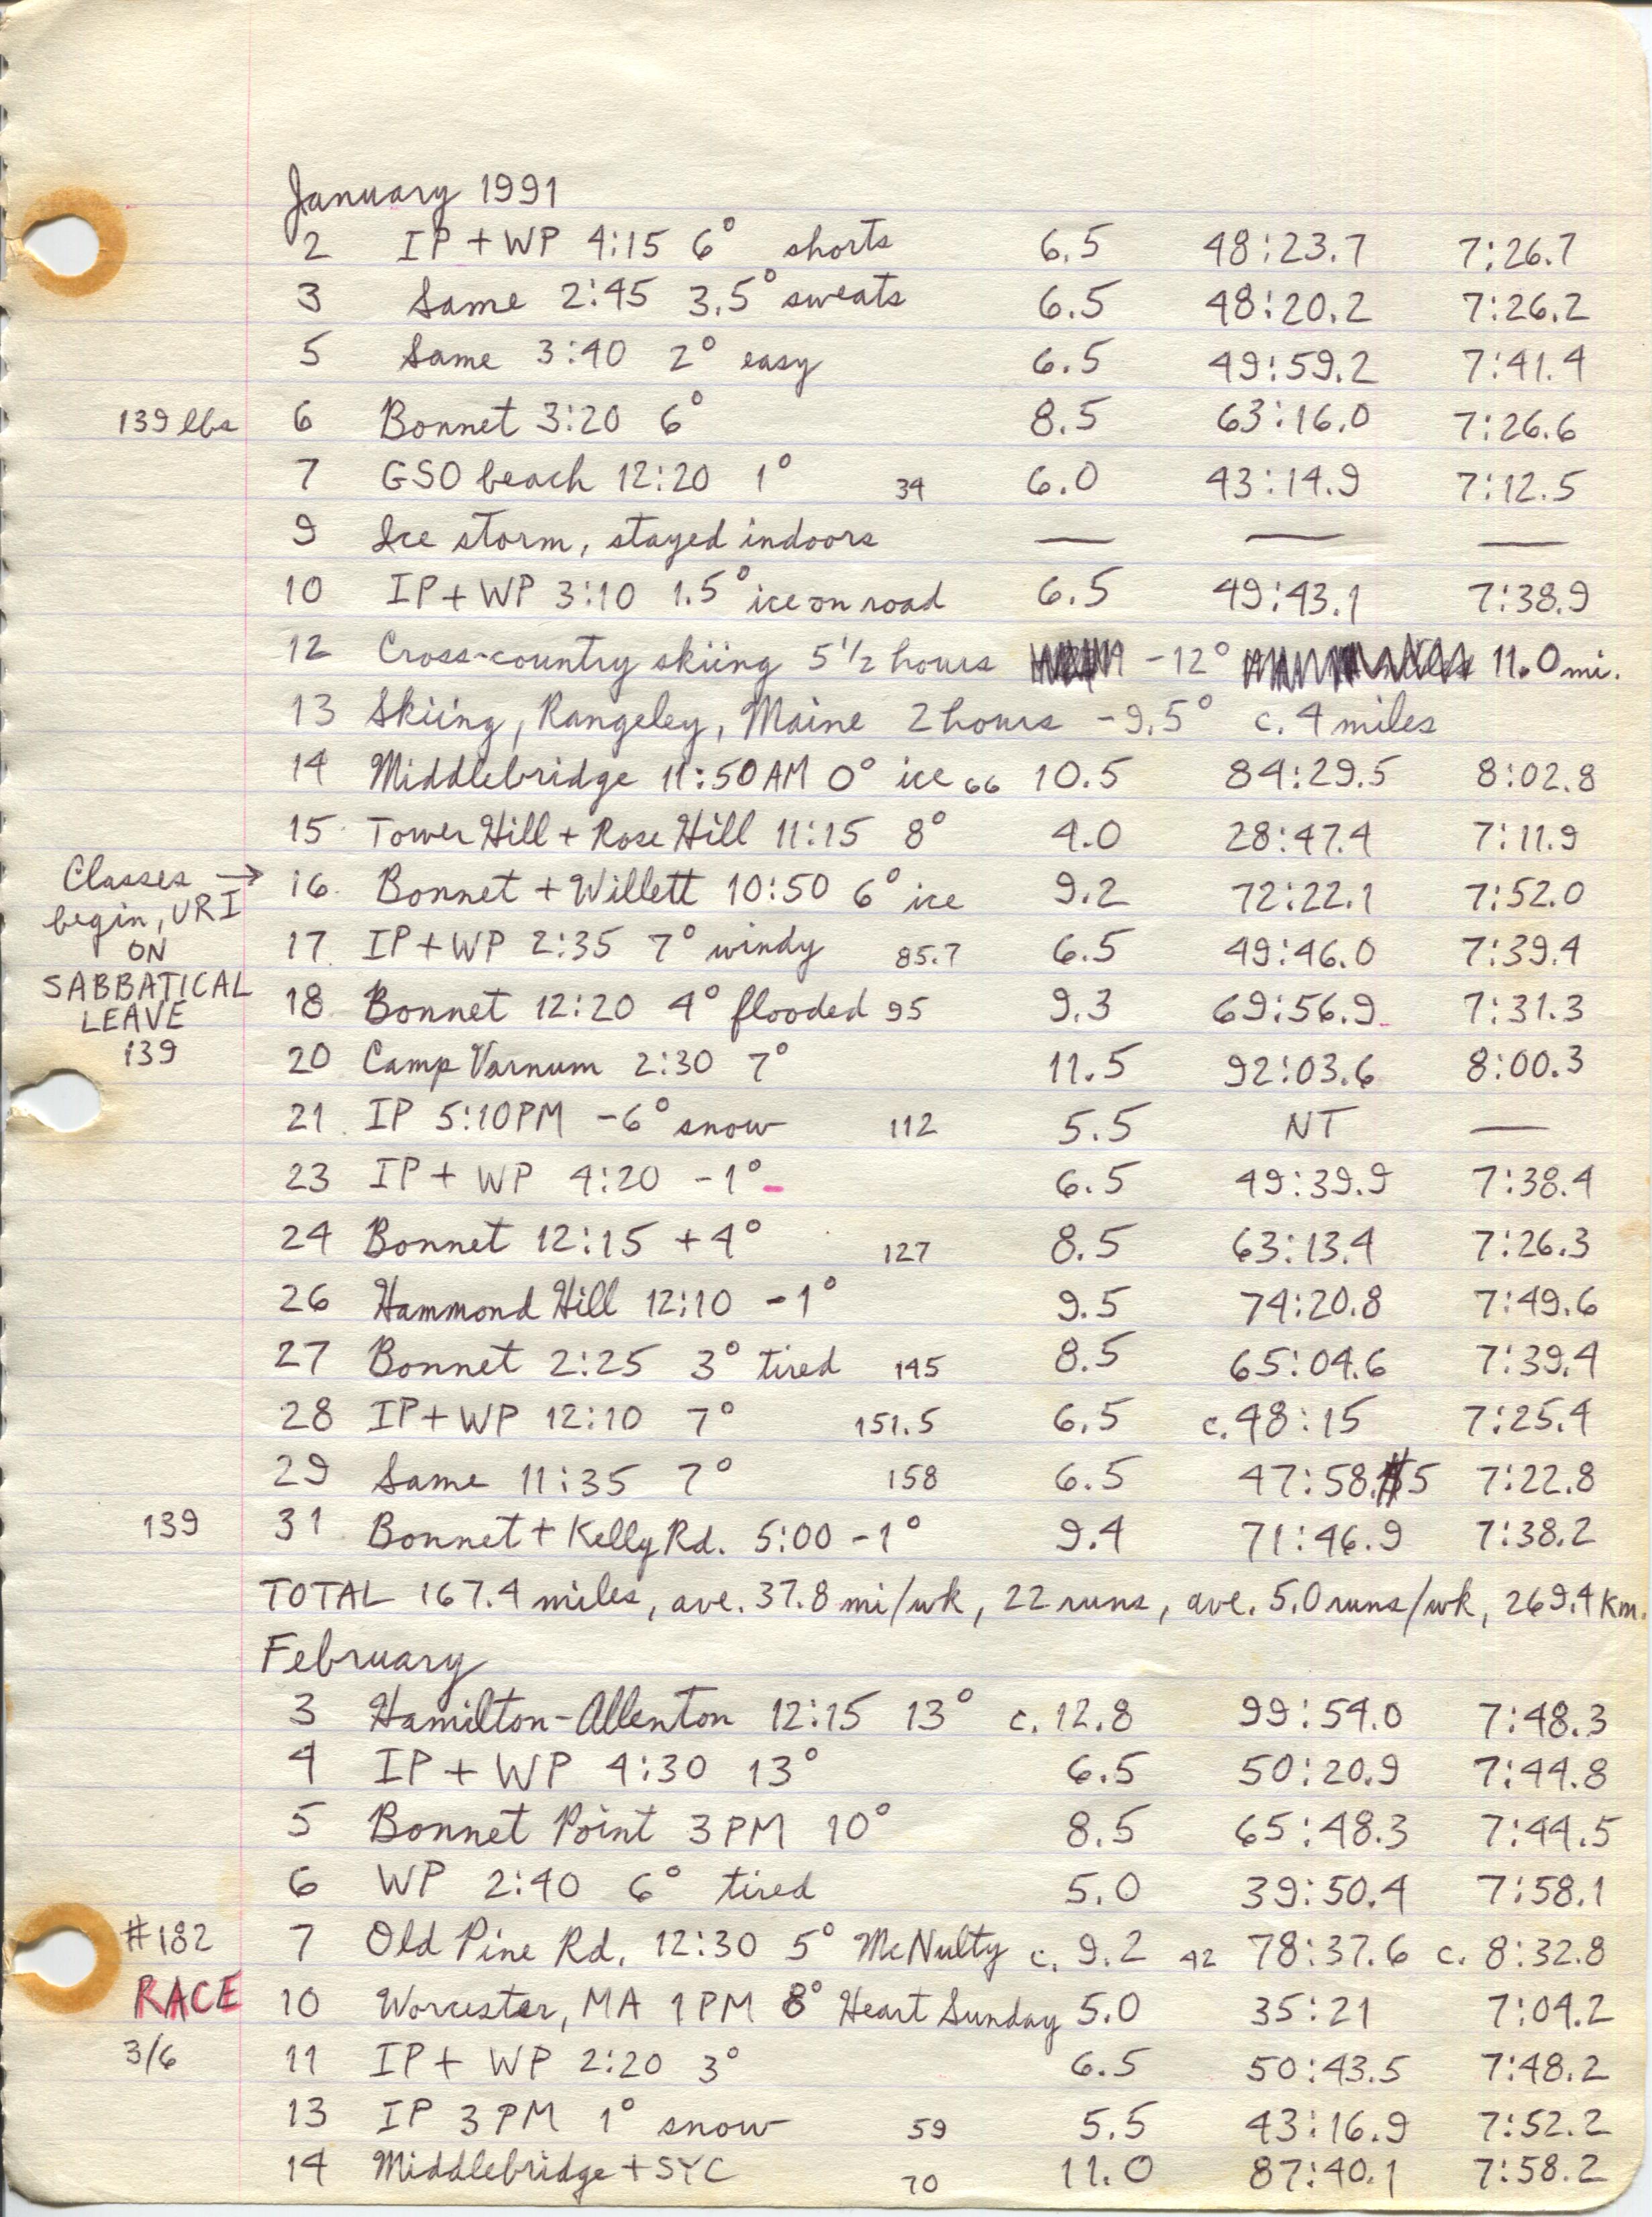 January 1991
2 IP + WP 4:15 6° shorts 6.5 48:23.7 7:26.7
3 Same 2:45 3.5° sweats 6.5 48:20.2 7:26.2
5 Same 3:40 2° easy 6.5 49:59.2 7:41.4
139 lbs 6 Bonnet 3:20 6° 8.5 63:16.0 7:26.6
7 GSO beach 12:20 1° 34 6.0 43:14.9 7:12.5
9 Ice storm, stayed indoors — — —
10 IP + WP 3:10 1.5° ice on road 6.5 49:43.1 7:38.9
12 Cross-country skiing 5 1/2 hours -12° 11.0 mi.
13 Skiing, Rangeley, Maine 2 hours -9.5° c. 4 miles
14 Middlebridge 11:50 AM 0° ice 66 10.5 84:29.5 8:02.8
15 Tower Hill + Rose Hill 11:15 8° 4.0 28:47.4 7:11.9
Classes → 16 Bonnet + Willett 10:50 6° ice 9.2 72:22.1 7:52.0
begin, URI
ON 17 IP + WP 2:35 7° windy 85.7 6.5 49:46.0 7:39.4
SABBATICAL 18 Bonnet 12:20 4° flooded 95 9.3 69:56.9 7:31.3
LEAVE
139 20 Camp Varnum 2:30 7° 11.5 92:03.6 8:00.3
21 IP 5:10 PM -6° snow 112 5.5 NT —
23 IP + WP 4:20 -1° 6.5 49:39.9 7:38.4
24 Bonnet 12:15 +4° 127 8.5 63:13.4 7:26.3
26 Hammond Hill 12:10 -1° 9.5 74:20.8 7:49.6
27 Bonnet 2:25 3° tired 145 8.5 65:04.6 7:39.4
28 IP + WP 12:10 7° 151.5 6.5 c. 48:15 7:25.4
29 Same 11:35 7° 158 6.5 47:58.5 7:22.8
139 31 Bonnet + Kelly Rd. 5:00 -1° 9.4 71:46.9 7:38.2
TOTAL 167.4 miles, ave. 37.8 mi/wk, 22 runs, ave. 5.0 runs/wk, 269.4 km.
February
3 Hamilton-Allenton 12:15 13° c. 12.8 99:54.0 7:48.3
4 IP + WP 4:30 13° 6.5 50:20.9 7:44.8
5 Bonnet Point 3 PM 10° 8.5 65:48.3 7:44.5
6 WP 2:40 6° tired 5.0 39:50.4 7:58.1
#182 7 Old Pine Rd. 12:30 5° McNulty c. 9.2 42 78:37.6 c. 8:32.8
RACE 10 Worcester, MA 1 PM 8° Heart Sunday 5.0 35:21 7:04.2
3/6 11 IP + WP 2:20 3° 6.5 50:43.5 7:48.2
13 IP 3 PM 1° snow 59 5.5 43:16.9 7:52.2
14 Middlebridge + SYC 70 11.0 87:40.1 7:58.2